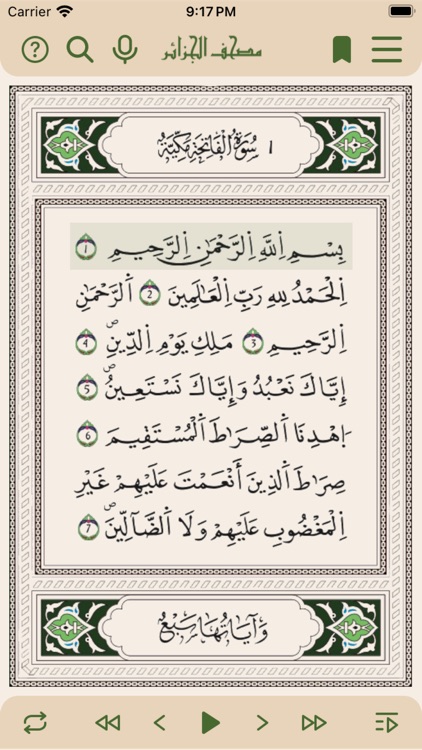 Carrier 9:17 PM
مصحف الجزائر
١ سُورَةُ الْفَاتِحَةِ مَكِّيَّةٌ
بِسْمِ اِ۬للَّهِ اِ۬لرَّحْمَٰنِ اِ۬لرَّحِيمِ 1
اِ۬لْحَمْدُ لِلهِ رَبِّ اِ۬لْعَٰلَمِينَ 2 اَ۬لرَّحْمَٰنِ
اِ۬لرَّحِيمِ 3 مَلِكِ يَوْمِ اِ۬لدِّينِ ۖ 4
إِيَّاكَ نَعْبُدُ وَإِيَّاكَ نَسْتَعِينُ ۖ 5
اَ۪هْدِنَا اَ۬لصِّرَٰطَ اَ۬لْمُسْتَقِيمَ 6
صِرَٰطَ اَ۬لذِينَ أَنْعَمْتَ عَلَيْهِمْ غَيْرِ
اِ۬لْمَغْضُوبِ عَلَيْهِمْ وَلَا اَ۬لضَّآلِّينَ ۖ 7
وَآيَاتُهَا سَبْعٌ